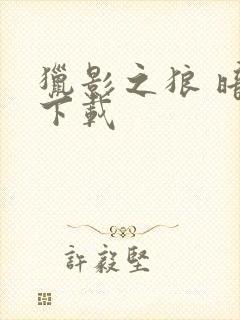 獵影之狼 暗
下載
許毅堅